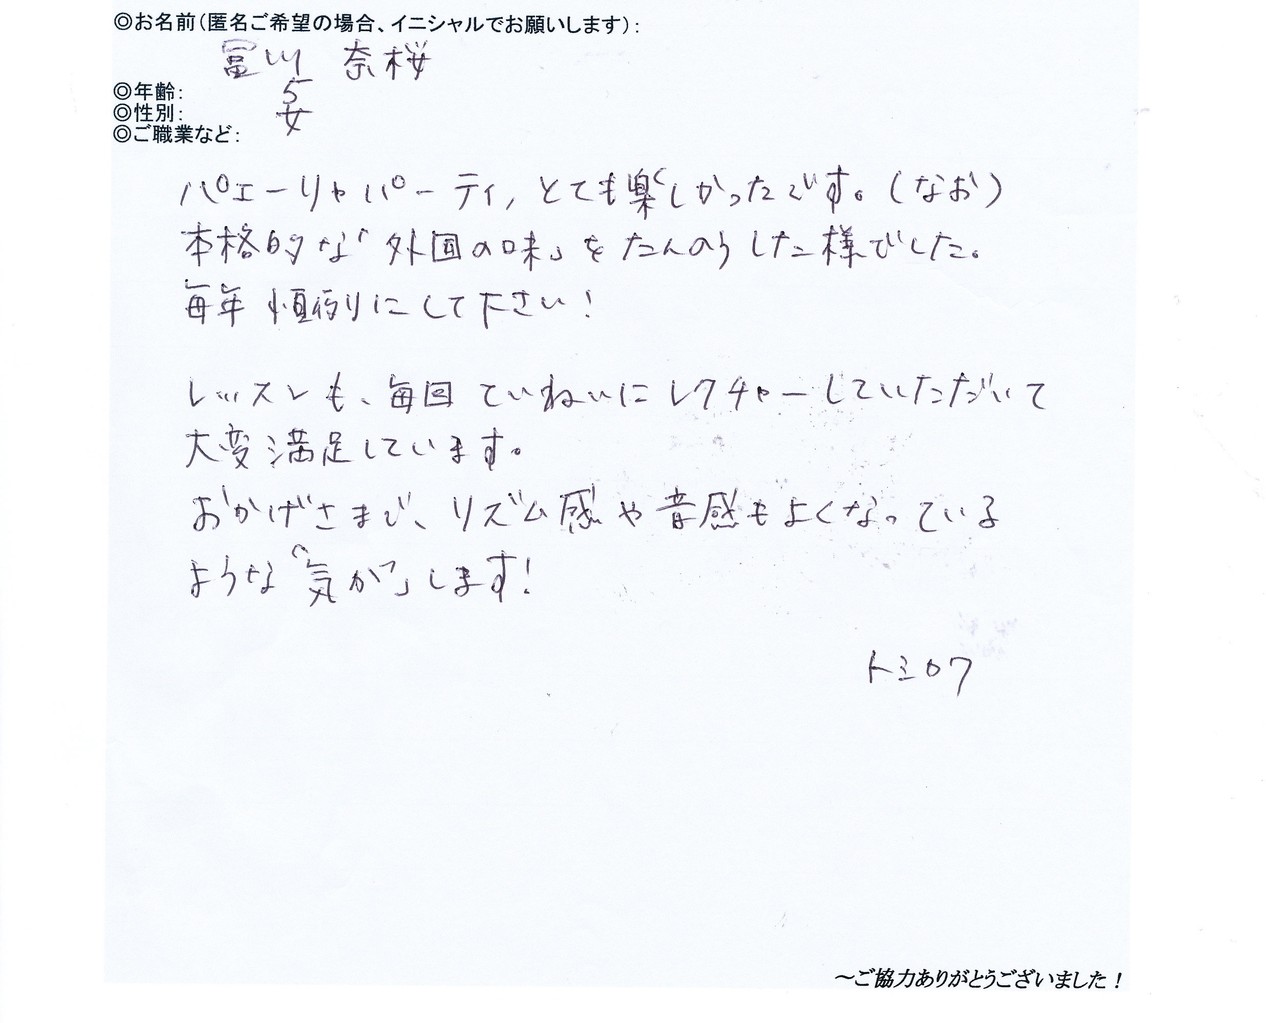 ◎お名前(匿名ご希望の場合、イニシャルでお願いします):
冨川 奈桜
◎年齢: 5
◎性別: 女
◎ご職業など:
パエーリャパーティ、とても楽しかったです。(なお)
本格的な「外国の味」をたんのうした様でした。
毎年恒例にして下さい!
レッスンも、毎回ていねいにレクチャーしていただいて
大変満足しています。
おかげさまで、リズム感や音感もよくなっている
ような「気が」します!
トミカワ
~ご協力ありがとうございました!